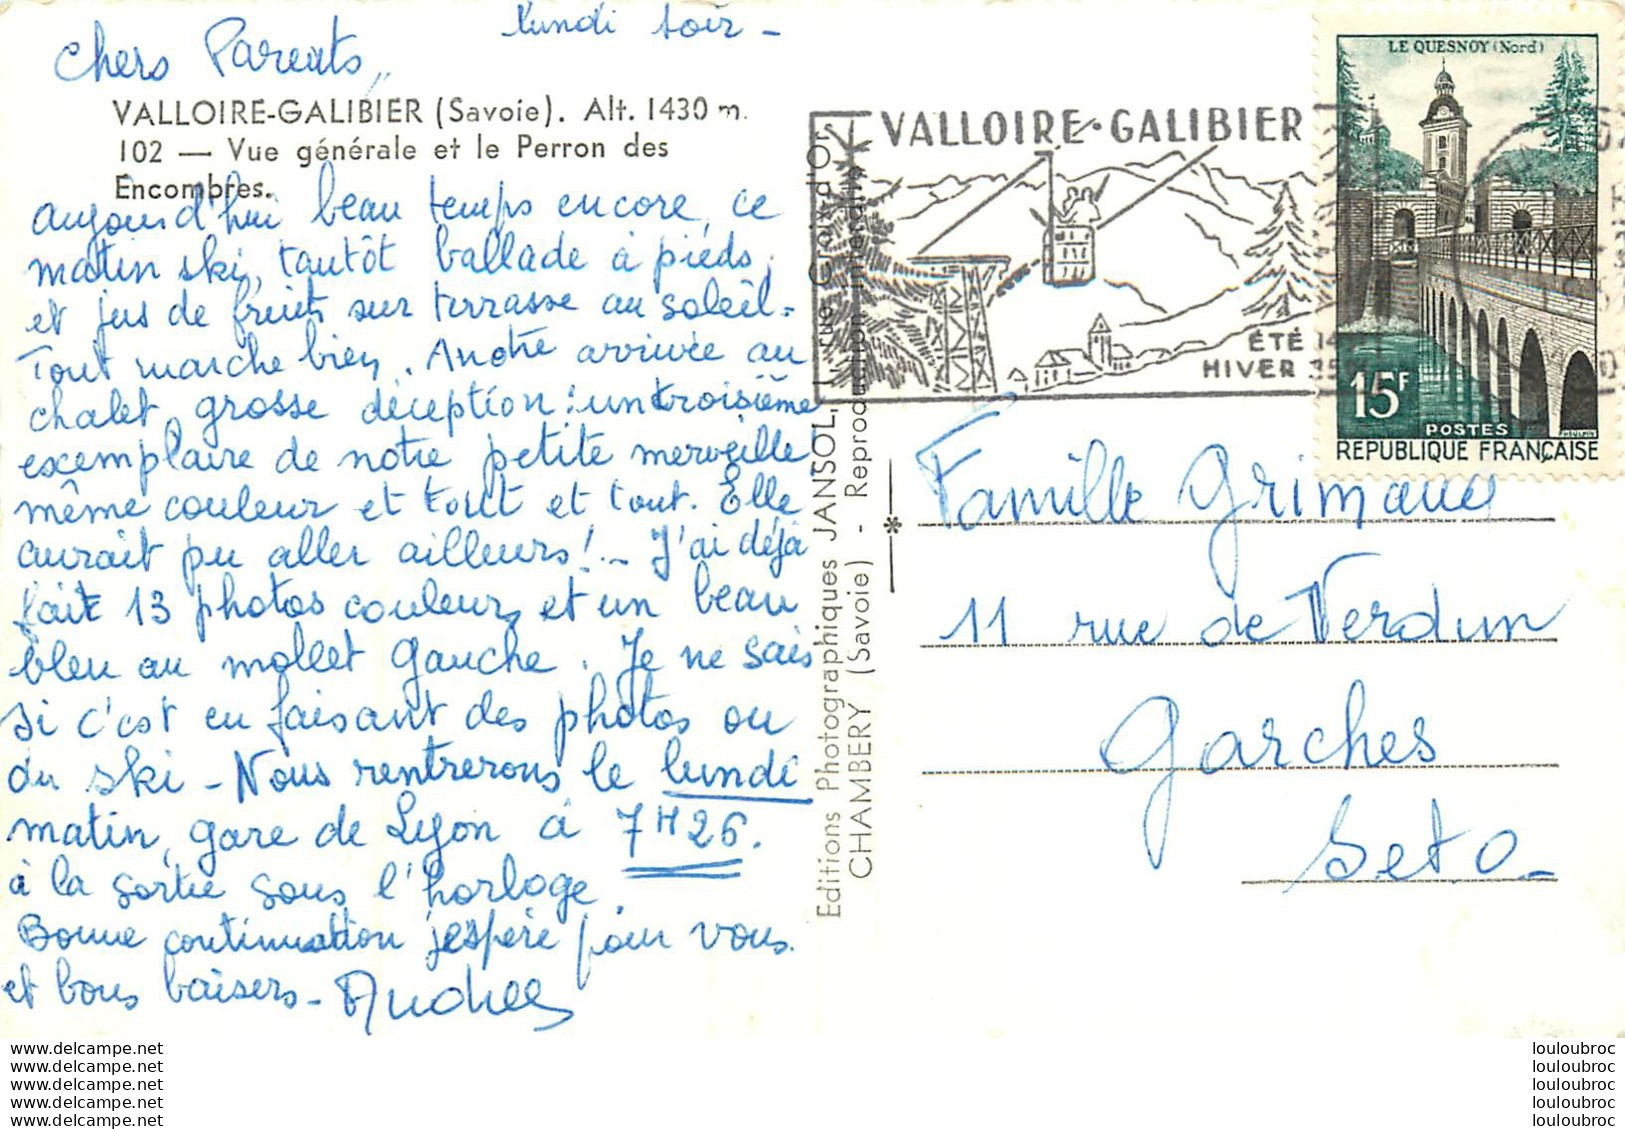 Lundi soir -
Chers Parents,
VALLOIRE-GALIBIER (Savoie). Alt. 1430 m.
102 — Vue générale et le Perron des
Encombres.
aujourd'hui beau temps encore, ce
matin ski, tantôt ballade à pieds,
et jus de fruits sur terrasse au soleil -
Tout marche bien. A notre arrivée au
chalet, grosse déception : un troisième
exemplaire de notre petite merveille
même couleur et tout et tout. Elle
aurait pu aller ailleurs ! - J'ai déjà
fait 13 photos couleurs, et un beau
bleu au mollet gauche. Je ne sais
si c'est en faisant des photos ou
du ski - Nous rentrerons le lundi
matin, gare de Lyon à 7H26.
à la sortie sous l'horloge.
Bonne continuation j'espère pour vous.
et bons baisers - Andrée
Editions Photographiques JANSOL, rue Croix-d'Or
CHAMBERY (Savoie) - Reproduction interdite
VALLOIRE-GALIBIER
ÉTÉ
HIVER
LE QUESNOY (Nord)
15F
POSTES
REPUBLIQUE FRANÇAISE
Famille Grimaud
11 rue de Verdun
Garches
Set O -
www.delcampe.net
www.delcampe.net
www.delcampe.net
www.delcampe.net
www.delcampe.net
louloubroc
louloubroc
louloubroc
louloubroc
louloubroc